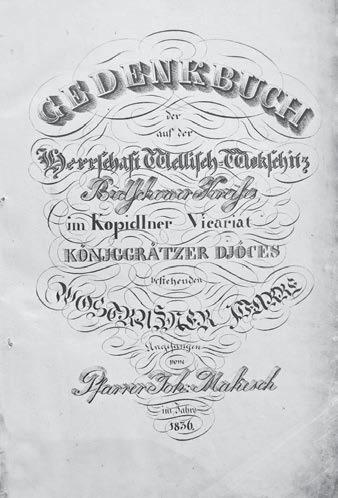 GEDENKBUCH
der
auf der
Herrschaft Wellisch-Wokschitz
Bidschower Kreises
im Kopidlner Vicariat
KÖNIGGRÄTZER DIÖCES
bestehenden
WOSTRUŽNER PFARRE
Angefangen
vom
Pfarrer Joh: Makesch
im Jahre
1836.